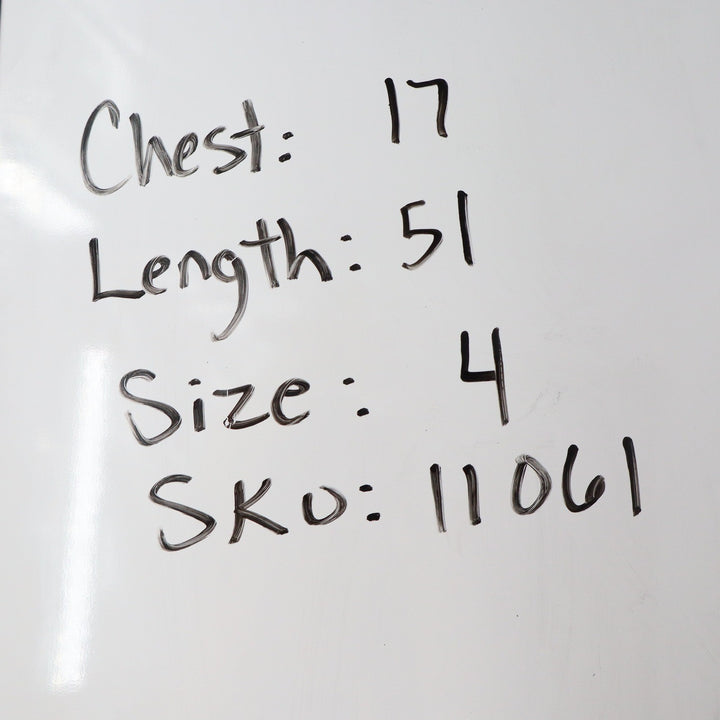 Chest: 17
Length: 51
Size: 4
SKU: 11061